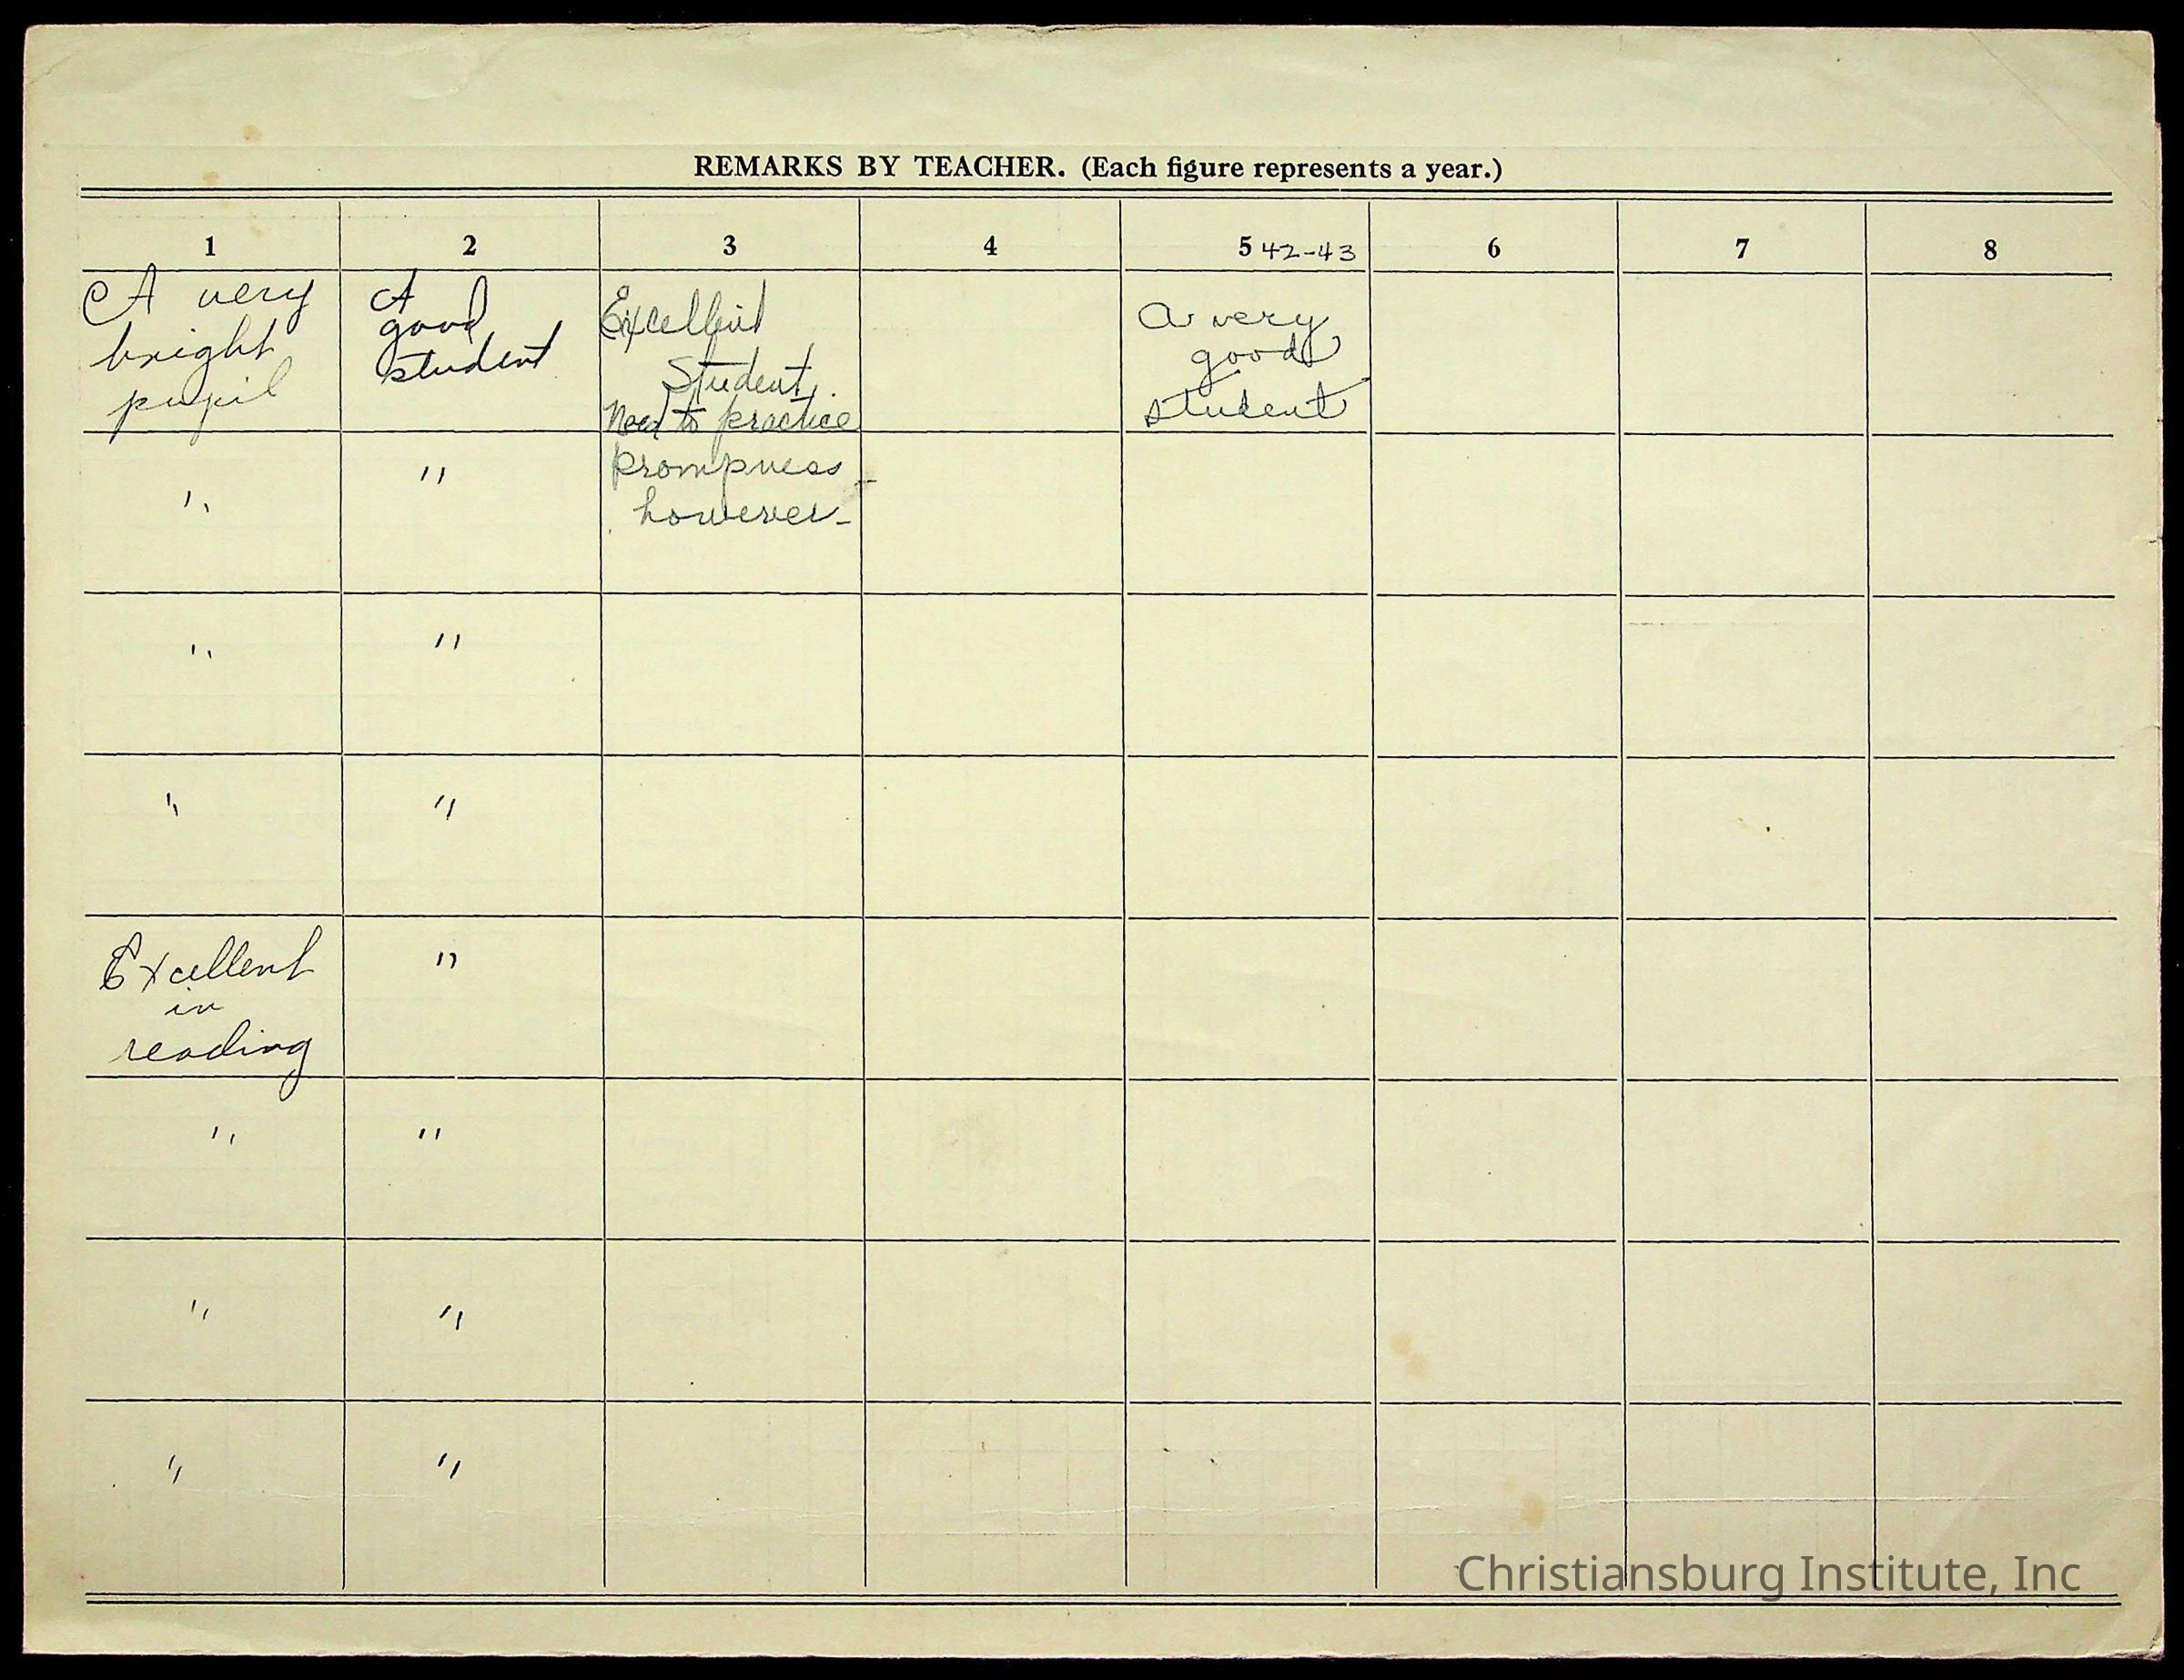 REMARKS BY TEACHER. (Each figure represents a year.)
1 2 3 4 5 42-43 6 7 8
A very
bright
pupil
"
"
"
Excellent
in
reading
"
"
"
A
good
student
"
"
"
"
"
"
"
Excellent
Student.
Need to practice
prompness
however-
A very
good
student
Christiansburg Institute, Inc